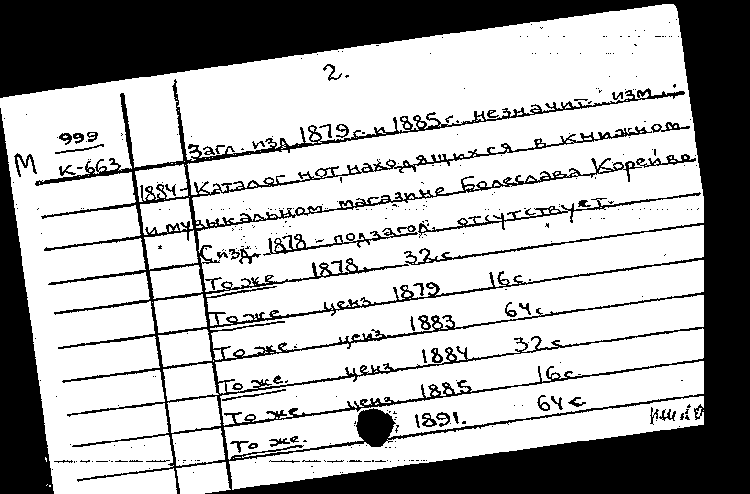 2.
999
М К-663
Загл. изд. 1879 г. и 1885 г. незначит. изм.:
1884 - Каталог нот, находящихся в книжном
и музыкальном магазине Болеслава Корейво
С изд. 1878 - подзагол. отсутствует.
То же 1878. 32 с.
То же. ценз. 1879 16 с.
То же. ценз. 1883 64 с.
То же. ценз. 1884 32 с
То же. ценз. 1885 16 с.
То же. 1891. 64 с